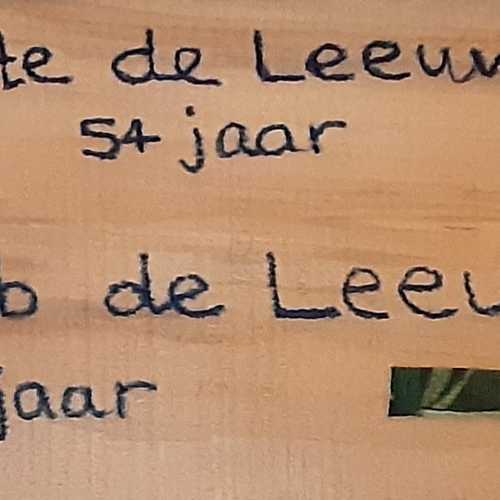 te de Leeuw
54 jaar
b de Leeu
jaar